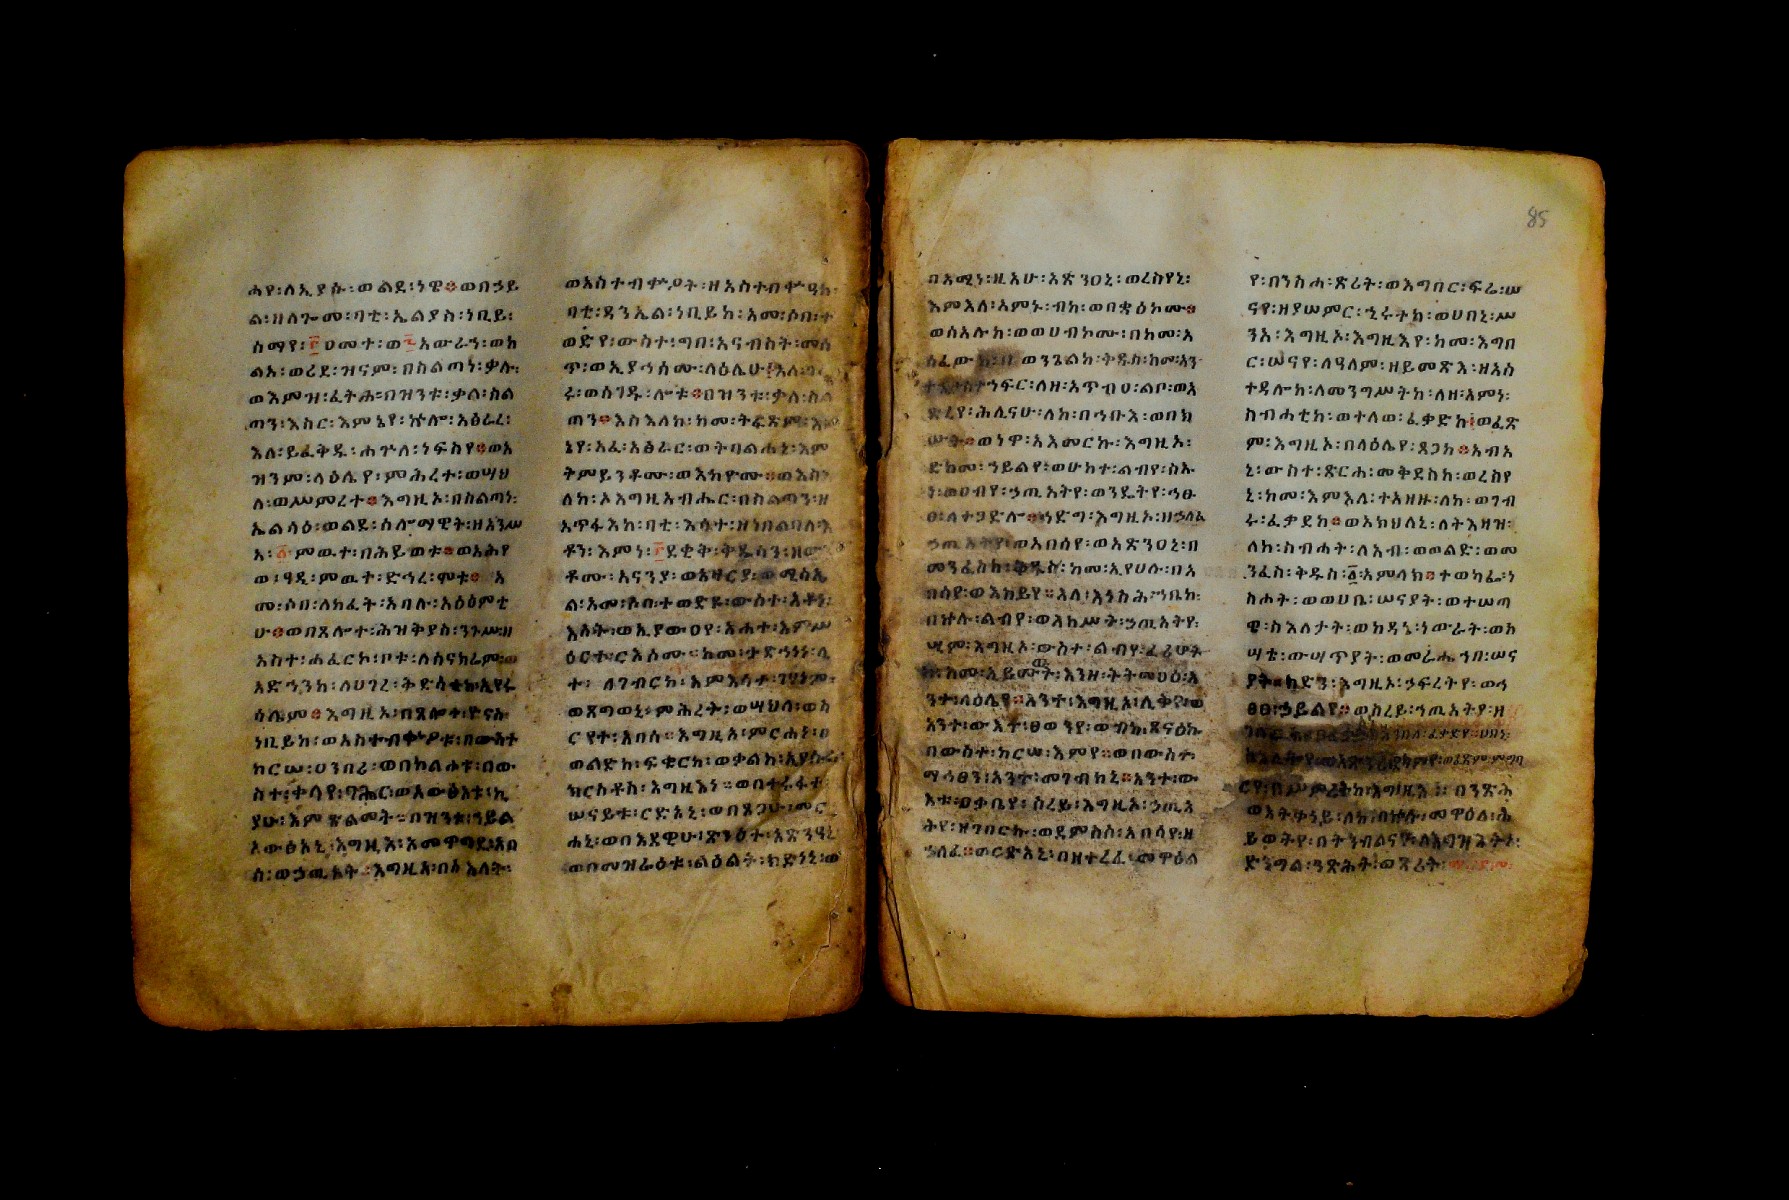 ሐየ፡ለኢያሱ፡ወልደ፡ነዌ።ወበኃይ
ል፡ዘለጐመ፡ባቲ፡ኤልያስ፡ነቢይ፡
ሰማየ፡፫ዓመተ፡ወ፯አውራኅ፡ወከ
ልአ፡ወሪደ፡ዝናም፡በስልጣነ፡ቃሉ፡
ወእምዝ፡ፈትሐ።በዝንቱ፡ቃል፡ስል
ጣን፡እስር፡እምኔየ፡ኵሎ፡አፅራረ፡
እለ፡ይፈቅዱ፡ሐጕለ፡ነፍስየ።ወአ
ዝንም፡ላዕሌየ፡ምሕረተ፡ወሣህ
ለ፡ወሥምረተ።እግዚኦ፡በስልጣነ፡
ኤልሳዕ፡ወልደ፡ሰሎማዊት፡ዘአንሥ
አ፡፩ምዉተ፡በሕይወቱ።ወአሕየ
ወ፡ዓዲ፡ምዉተ፡ድኅረ፡ሞቱ።አ
መ፡ሶበ፡ለከፈት፡አባሉ፡አዕፅምቲ
ሁ።ወበጸሎተ፡ሕዝቅያስ፡ንጉሥ፡ዘ
አስተ፡ሐፈርከ፡ቦቱ፡ለሰናክሬም፡ወ
አድኀንከ፡ለሀገረ፡ቅድሳቲከ፡ኢየሩ
ሳሌም።እግዚኦ፡በጸሎተ፡ዮናስ፡
ነቢይከ፡ወአስተብቍዖቱ፡በውስተ
ከርሠ፡ዐንበሪ፡ወበከልሐቱ፡በው
ስተ፡ቀላየ፡ባሕር፡ወአውፅአቱ፡ኪ
ያሁ፡እምጽልመት።በዝንቱ፡ኃይል
አውፅአኒ፡እግዚኦ፡እመዋግደ፡አበ
ሳ፡ወኃጢአት።እግዚኦ፡በፅእለት፡
ወአስተብቍዖት፡ዘአስተብቍዓከ
ባቲ፡ዳንኤል፡ነቢይከ፡አመ፡ሶበ፡ተ
ወድየ፡ውስተ፡ግበ፡አናብስት፡መሰ
ጥ፡ወኢያኅሰሙ፡ላዕሌሁ
ሩ፡ወሰገዱ፡ሎቱ።በዝንቱ፡ቃለ፡ስል
ጣን።እስእለከ፡ከመ፡ትፈጽም፡እም
ኔየ፡አፈ፡አፅራር፡ወትባልሐኒ፡እም
ትምይንቶሙ፡ወእከዮሙ።ወእስእ
ለከ፡ኦእግዚአብሔር፡በስልጣን፡ዘ
አጥፋእከ፡ባቲ፡እሳተ፡ዘነበልባለ፡እ
ቶን፡እምነ፡፫ደቂቅ፡ቅዱሳን፡ዘው
ቶሙ፡አናንያ፡ወአዛርያ፡ወሚሳኤ
ል፡አመ፡ሶበ፡ተወድዩ፡ውስተ፡እቶነ፡
እሳት፡ወኢያውዐየ፡አሐተ፡እምሥ
ዕርተ፡ርእሶሙ።ከመ፡ታድኅነነ፡ላ
ተ፡ለገብርከ፡እምእሳተ፡ገሃነም፡
ወጸግወኒ፡ምሕረት፡ወሣህለ፡ወስ
ርየተ፡አበሳ።እግዚኦ፡ምርሐኒ፡በ
ወልድከ፡ፍቁርከ፡ወቃልከ፡ኢየሱስ
ክርስቶስ፡እግዚእነ።ወበተሩፋተ፡
ሠናይቱ፡ርድአኒ፡ወበጸጋሁ፡መር
ሐኒ፡ወበእደዊሁ፡ጽንዕት፡አጽንዓኒ
ወበመዝራዕቱ፡ልዕልት፡ክድነኒ፡ወ
በአሚነ፡ዚአሁ፡አጽንዐኒ፡ወረስየኒ፡
እምእለ፡አምኑ፡ብከ፡ወበቋዕከሙ።
ወሰአሉከ፡ወወሀብኮሙ፡በከመ፡አ
ሰፈውከ፡በወንጌልከ፡ቅዱስ፡ከመ፡አን
ተኃፍር፡ለዘ፡አጥብዐ፡ልቦ፡ወአ
ድረየ፡ሕሊናሁ፡ለከ፡በኅቡእ፡ወበክ
ሡት።ወነዋ፡አእመርኩ፡እግዚኦ፡
ድከመ፡ኀይልየ፡ወሁከተ፡ልብየ፡ስኡ
ነ፡ወዐብየ፡ኃጢአትየ፡ወንዴትየ፡ኅፁ
ፀ፡ላተጋድሎ።ኅድግ፡እግዚኦ፡ዘኃላፊ
ኃጢአትየ፡ወአበሳየ፡ወአጽንዐኒ፡በ
መንፈስከ፡ቅዱስ፡ከመ፡ኢየሀሉ፡በአ
በሳየ፡ወእከይየ።አላ፡እንስሕ፡ኀቤከ፡
በኵሉ፡ልብየ፡ወእከሥት፡ኃጢአትየ፡
ሢም፡እግዚኦ፡ውስተ፡ልብየ፡ፈሪሆት
ከ፡ከመ፡ኢይሙት፡እንዘ፡ትትመዐዕ፡አ
ንተ፡ላዕሌየ።አንተ፡እግዚኦ፡ሊቅየ፡ወ
አንተ፡ውእቱ፡ፀወንየ፡ወብከ፡ጸናዕኩ
በውስተ፡ከርሠ፡እምየ።ወበውስተ፡
ማኅፀን፡አንተ፡መገብከኒ።አንተ፡ው
እቱ፡ዐቃቢየ፡ስረይ፡እግዚኦ፡ኃጢአ
ትየ፡ዘገበርኩ፡ወደምስስ፡አበሳየ፡ዘ
ኃለፈ።ወርድአኒ፡በዘተረፈ፡መዋዕል
የ፡በንስሐ፡ጽሪት፡ወእግበር፡ፍሬ፡ሠ
ናየ፡ዘያሠምር፡ኂሩትከ፡ወሀበኒ፡ሥ
ንአ፡እግዚኦ፡እግዚእየ፡ከመ፡እግበ
ር፡ሠናየ፡ለዓለም፡ዘይመጽእ፡ዘእስ
ተዳሎከ፡ለመንግሥትከ፡ለዘ፡እምነ፡
ስብሐቲከ፡ወተለወ፡ፈቃድከ፡ወፈጽ
ም፡እግዚኦ፡በላዕሌየ፡ጸጋከ።አብአ
ኒ፡ውስተ፡ጽርሐ፡መቅደስከ፡ወረስየ
ኒ፡ከመ፡እምእለ፡ተአዘዙ፡ለከ፡ወገብ
ሩ፡ፈቃደከ።ወአክህለኒ፡ለትእዛዝ፡
ለከ፡ስብሐት፡ለአብ፡ወወልድ፡ወመ
ንፈስ፡ቅዱስ፡፩፡አምላክ።ተወካፌ፡ነ
ስሐት፡ወወሀቤ፡ሠናያት፡ወተሠጣ
ዌ፡ስእለታት፡ወከዳኔ፡ነውራት፡ወከ
ሣቴ፡ውሣጥያት፡ወመራሔ፡ኀበ፡ሠና
ያት።ክድን፡እግዚኦ፡ኃፍረትየ፡ወኅ
ፀፀ፡ኃይልየ።ወስረይ፡ኀጢአትየ፡ዘ
ርየ፡በሥምረትከ፡እግዚእ።በንጽሕ
ወእትቀነይ፡ለከ፡በኵሉ፡መዋዕለ፡ሕ
ይወትየ፡በትንብልናሃ፡ለእግዝእትነ፡
ድንግል፡ንጽሕት፡ወጽሪት፡
85